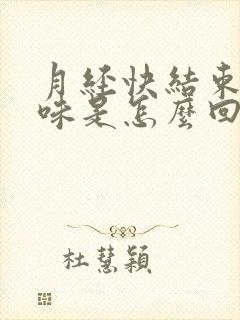 月经快結束
味是怎麼回
杜慧穎